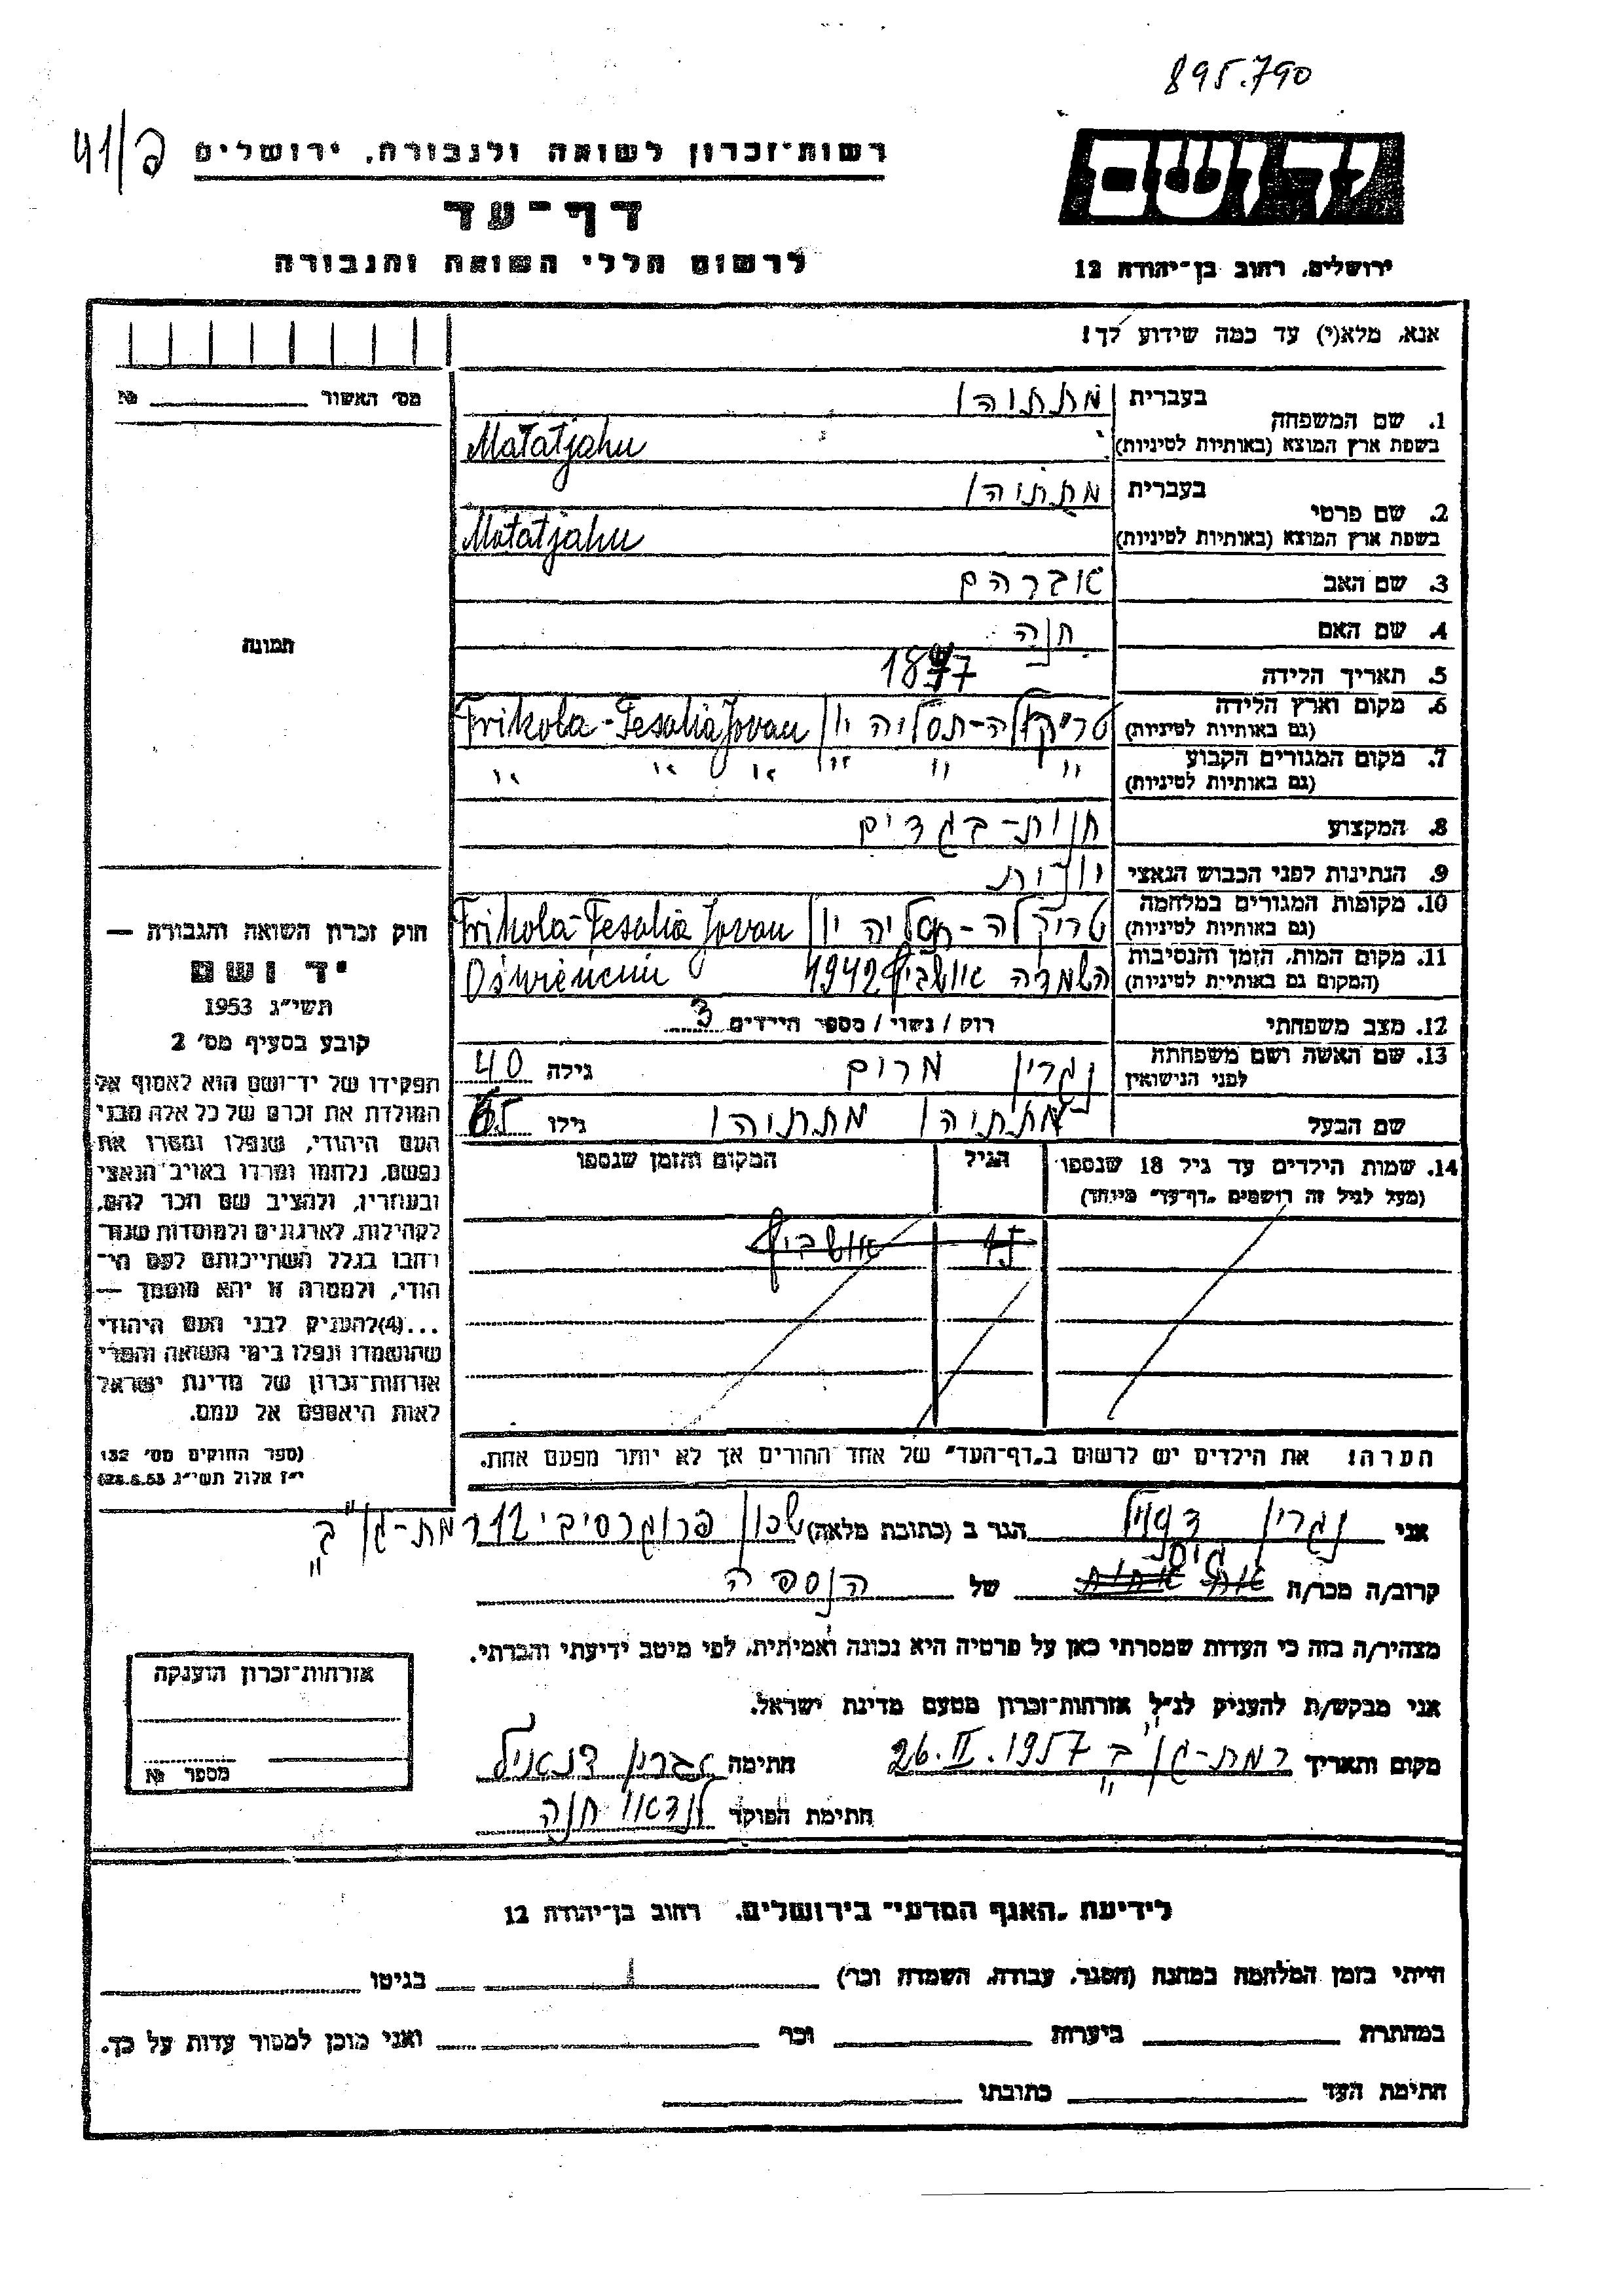 895.790
41/ג
רשות־זכרון לשואה ולגבורה, ירושלים
דף־עד
לרשום חללי השואה והגבורה
ידושם
ירושלים, רחוב בן־יהודה 12
אנא, מלא(י) עד כמה שידוע לך!
מס׳ האשור № 
1. שם המשפחה
בעברית מתתיהו
בשפת ארץ המוצא (באותיות לטיניות) Matatjahu
2. שם פרטי
בעברית מתתיהו
בשפת ארץ המוצא (באותיות לטיניות) Matatjahu
3. שם האב אברהם
4. שם האם חנה
תמונה
5. תאריך הלידה 1877
6. מקום וארץ הלידה טריקלה-תסליה יון Trikola-Tesalia Jovan
(גם באותיות לטיניות)
7. מקום המגורים הקבוע " " " " " "
(גם באותיות לטיניות)
8. המקצוע חנות-בגדים
9. הנתינות לפני הכבוש הנאצי יונית
10. מקומות המגורים במלחמה טריקלה-תסליה יון Trikola-Tesalia Jovan
(גם באותיות לטיניות)
11. מקום המות, הזמן והנסיבות השמדה אושביץ 1942 Oświęcim
(המקום גם באותיות לטיניות)
12. מצב משפחתי רוק / נשוי / מספר הילדים 3
13. שם האשה ושם משפחתה נגרין מרים גילה 40
לפני הנישואין
שם הבעל מתתיהו מתתיהו גילו 65
14. שמות הילדים עד גיל 18 שנספו הגיל המקום והזמן שנספו
(מעל לגיל זה רושמים „דף־עד" מיוחד)
15 אושביץ
הערה: את הילדים יש לרשום ב„דף־העד" של אחד ההורים אך לא יותר מפעם אחת.
חוק זכרון השואה והגבורה —
יד ושם
תשי״ג 1953
קובע בסעיף מס׳ 2
תפקידו של יד־ושם הוא לאסוף אל
המולדת את זכרם של כל אלה מבני
העם היהודי, שנפלו ומסרו את
נפשם, נלחמו ומרדו באויב הנאצי
ובעוזריו, ולהציב שם וזכר להם,
לקהילות, לארגונים ולמוסדות שנח־
רבו בגלל השתייכותם לעם הי־
הודי, ולמטרה זו יהא מוסמך —
...(4)להעניק לבני העם היהודי
שהושמדו ונפלו בימי השואה והמרי
אזרחות־זכרון של מדינת ישראל
לאות היאספם אל עמם.
(ספר החוקים מס׳ 132
י״ז אלול תשי״ג 28.8.53)
אני נגרין דניאל הגר ב (כתובת מלאה) שכון פרוגרסיבי 12 רמת-גן ב"
קרוב/ה מכר/ה גיסה של הנספה
מצהיר/ה בזה כי העדות שמסרתי כאן על פרטיה היא נכונה ואמיתית, לפי מיטב ידיעתי והכרתי.
אני מבקש/ת להעניק לנ״ל אזרחות־זכרון מטעם מדינת ישראל.
מקום ותאריך רמת-גן ב" 26.II.1957 חתימה נגרין דניאל
חתימת הפוקד לנדאו חנה
אזרחות־זכרון הוענקה
מספר №
לידיעת „האגף המדעי" בירושלים, רחוב בן־יהודה 12
הייתי בזמן המלחמה במחנה (הסגר, עבודה, השמדה וכו׳) בגיטו
במחתרת ביערות וכו׳ ואני מוכן למסור עדות על כך.
חתימת העד כתובתו